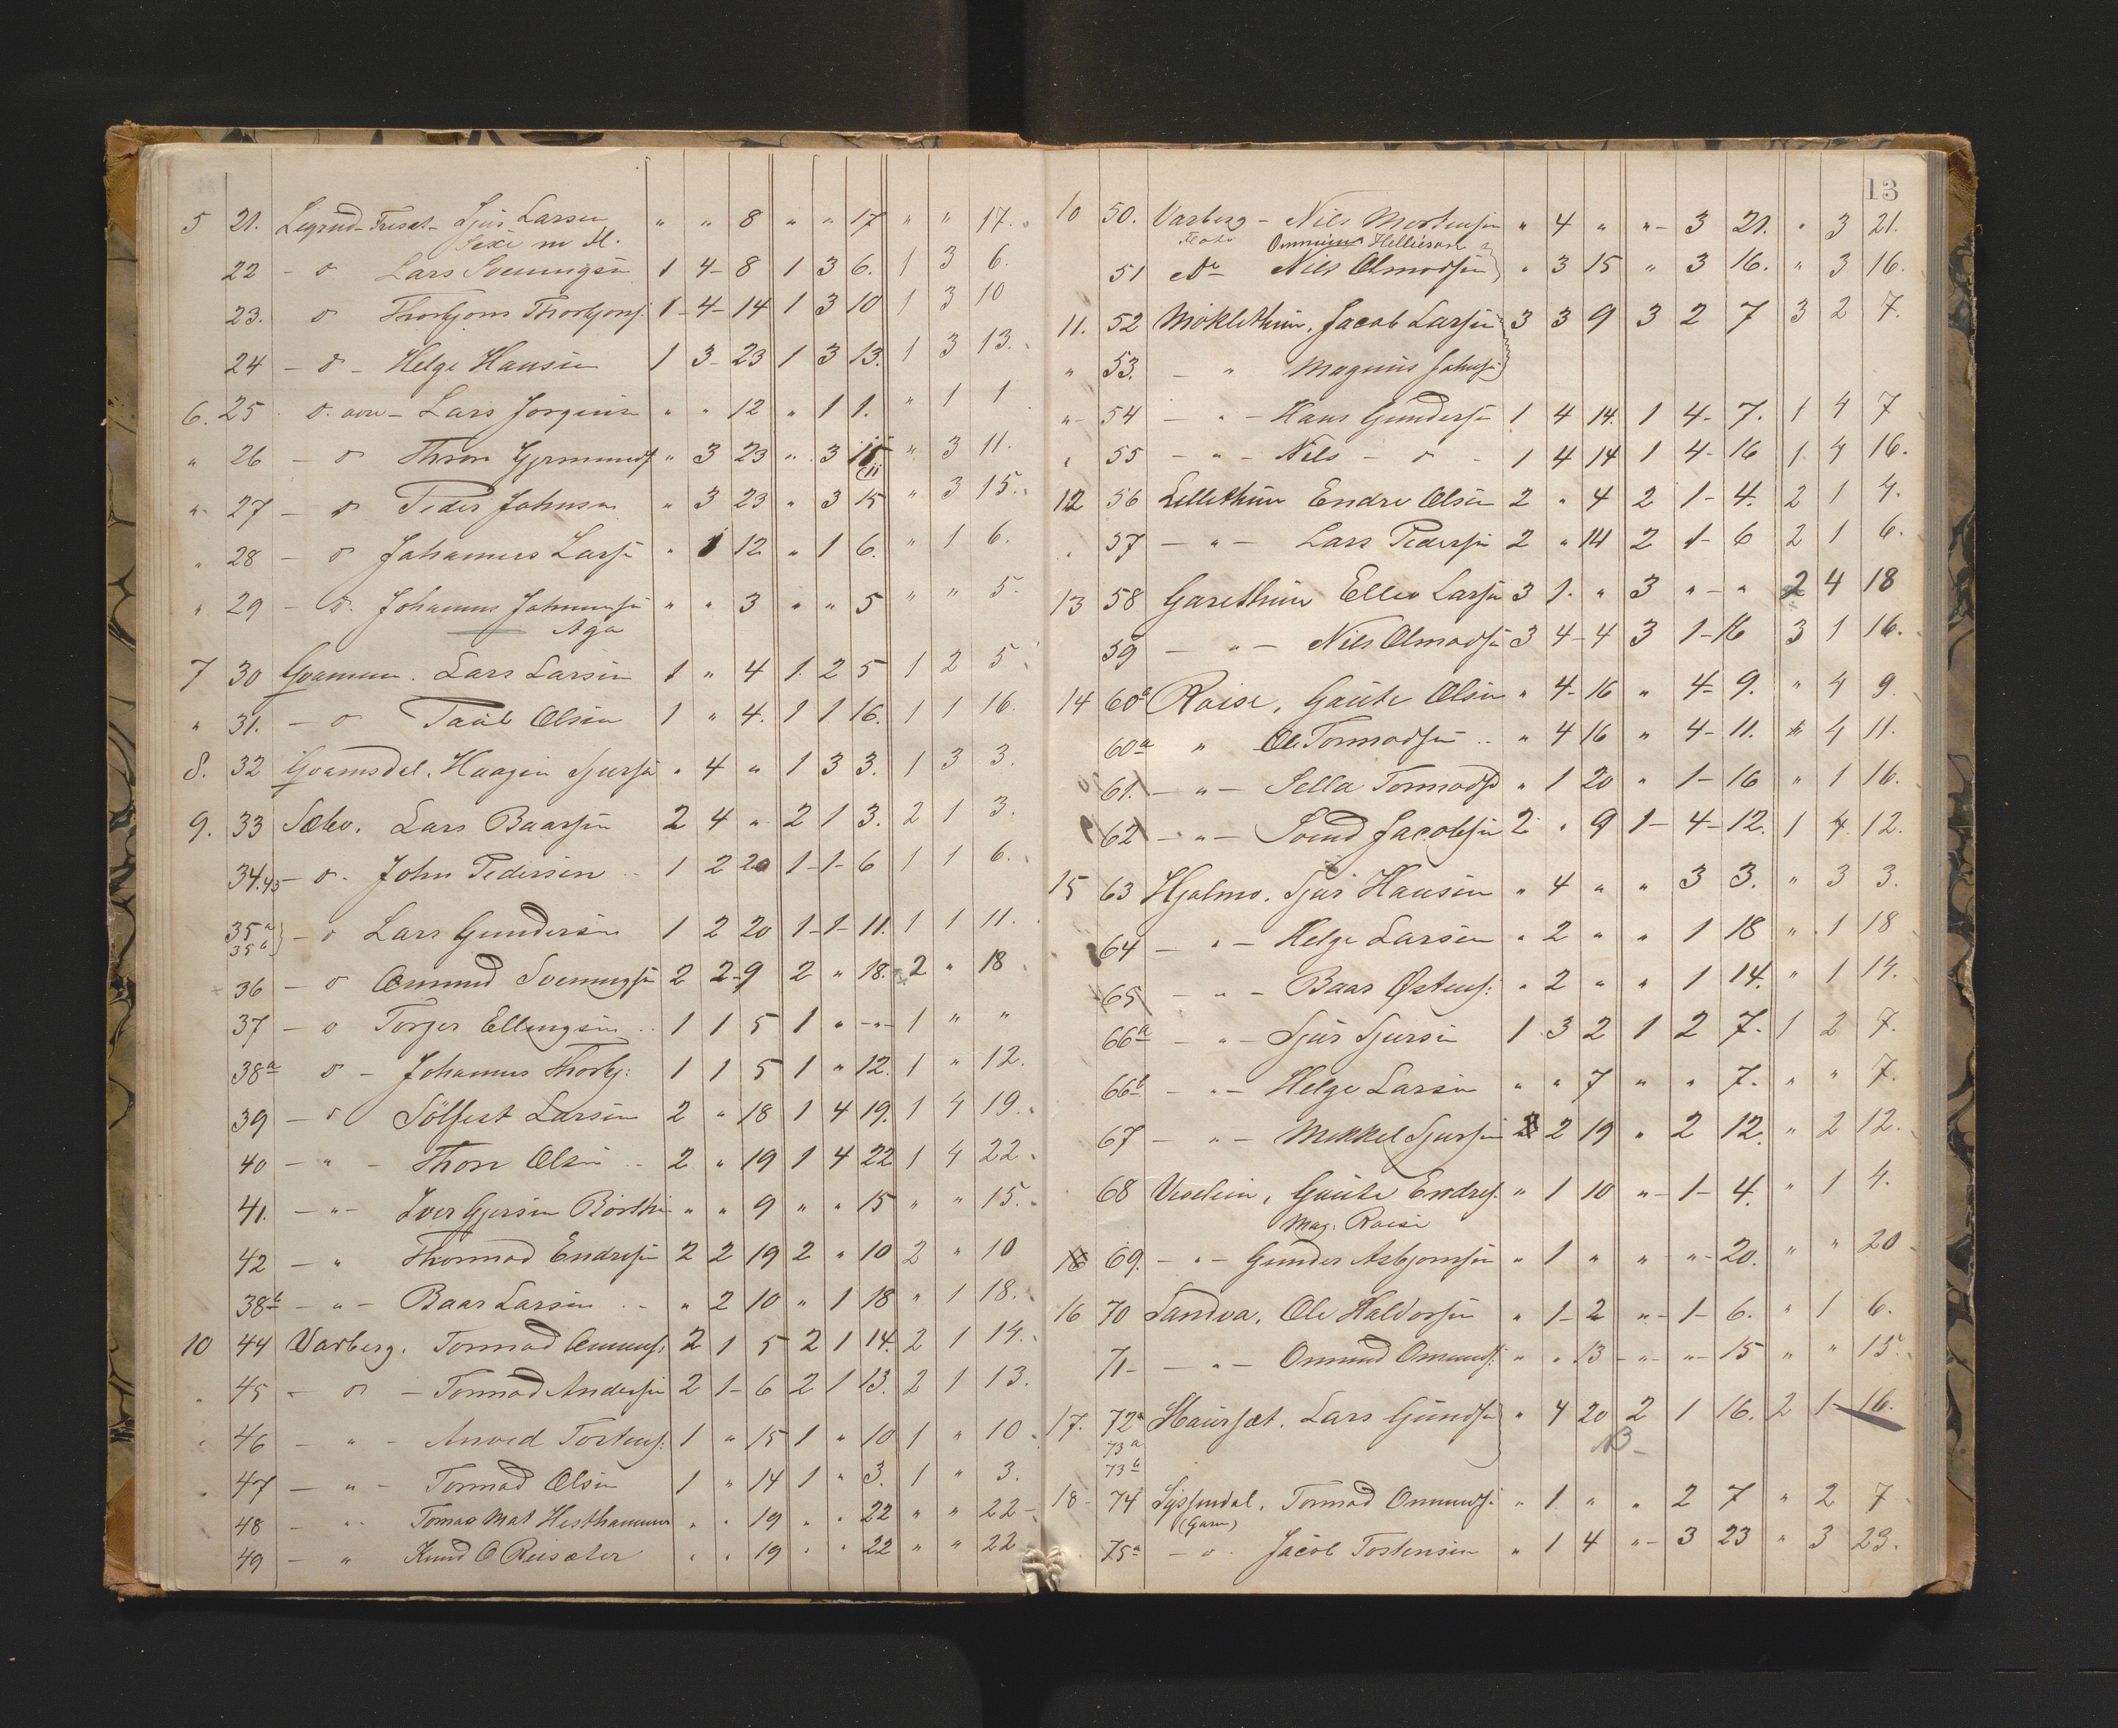 5 21. Legrud-Tresat- Sjur Larsen " " 8 " " 17 " " 17.
Sexe m H.
22 - o Lars Sveningsen 1 4- 8 1 3 6. 1 3 6.
23. o Thorbjorn Thorbjørns. 1- 4- 14 1 3 10 1 3 10
24 - o - Helge Hansen 1 3- 23 1 3 13. 1 3 13.
6. 25 o. øvre - Lars Jorgensen " " 12 " 1 1. " 1 1
" 26 - o Thron Gjermunds. " 3 23 " 3 11 " 3 11.
" 27 - o Peder Johnsen " 3 23 " 3 15 " 3 15.
" 28 - o Johannes Larse " 1 12 " 1 6. " 1 6.
" 29 - o. Johannes Johannesse " " 3 " " 5 " " 5.
Aga
7 30 Gvamme. Lars Larsen 1 " 4 1. 2 5 1 2 5.
" 31. - o Paul Olsen 1 " 4. 1 1 16. 1 1 16.
8. 32 Gvamsdel. Haagen Sjurse " 4 " 1 3 3. 1 3 3.
9. 33 Sæbo. Lars Baarsen 2 4 " 2 1 3. 2 1 3.
34.43 - o. John Pedersen 1 2 20 1- 1- 6 1 1 6.
35a 35b } - o Lars Gundersen 1 2 20 1- 1- 11. 1 1 11.
36 - o Omund Sveningse 2 2- 9 2 " 18. 2 " 18
37 - o Torger Ellingsen 1 1 5 1 " -"- 1 " "
38a o - Johannes Thorbj: 1 1 5 1 " 12. 1 " 12.
39 - o Sölfest Larsen 2 " 18 1 4 19. 1 4 19.
40 - " - Thore Olsen 2 " 19 1 4 22 1 4 22.
41. - " - Iver Gjersen Börsthei " " 9 " " 15 " " 15.
42 - " Thormod Endresen 2 2 19 2 " 10 2 " 10
38b - " - Baar Larsen " 2 10 " 1 18 " 1 18.
10 44 Varberg. Tormod Omunds: 2 1 5 2 1 14. 2 1 14.
" 45 - o - Tormod Anderse 2 1- 6 2 1 13. 2 1 13.
" 46 - " - Anved Tostens. 1 " 15 1 " 10 1 " 10
" 47 - " - Tormod Olsen 1 " 14 1 " 3. 1 " 3.
48 - " Tomas Mat Hesthammer " " 19 " " 22 " " 22-
49 - " Knud O Reisæter " " 19 " " 22 " " 22
13
10 50. Varberg - Nils Mortensen " 4 " "- 3 21. " 3 21.
Ommund Hellesen
51 do Nils Olmodsen " 3 15 " 3 16. " 3 16.
11. 52 Möklethun. Jacob Larsen 3 3 9 3 2 7 3 2 7.
" 53. - " Magnus Johnse
"- 54 - " - Hans Gunderse 1 4 14. 1 4- 7. 1 4 7
" 55 - " - Nils - o - 1 4 14 1 4- 16 1 4 16.
12 56 Lillethun Endre Olsen 2 " 4 2 1- 4. 2 1 4.
" 57 - " - Lars Pederse 2 " 14 2 1- 6 2 1 6.
13 58 Garethun Ellev Larse 3 1. " 3 " - " 2 4 18
59 - " - Nils Olmodse 3 4- 4 3 1- 16 3 1 16.
14 60a Raise, Gaute Olsen " 4- 16 " 4- 9. " 4 9
60a " Ole Tormodsen " 4 16 " 4- 11. " 4 11.
61. - " - Sella Tormodsd " 1 20 " 1- 16 " 1 16.
62 - " - Svend Jacobsen 2 " 9 1- 4- 12. 1 4 12.
15 63 Hjalmo. Sjur Hansen " 4 " " 3 3. " 3 3.
64 - " - Helge Larsen " 2 " " 1 18 " 1 18
65 - " - Baar Østens: " 2 " " 1 14. " 1 14.
66a - " - Sjur Sjursen 1 3 2 1 2 7. 1 2 7.
66b - " - Helge Larsen " " 7 " " 7. " " 7.
67 - " - Mikkel Sjursen 2 19 " 2 12. " 2 12.
68 Veselein, Gaute Endres. " 1 10 "- 1- 4. " 1 4.
Mag. Raise
16 69. - " - Gunder Asbjornsen " 1 " " "- 20. " " 20
16 70 Sandva. Ole Haldorsen " 1- 2 "- 1- 6. " 1 6.
71 - " - Omund Omunds: " " 13 -"- "- 15 " " 15.
17. 72a Haursæt. Lars Gundse " 4 20 2 1 16. 2 1- 16.
73a NB-
73b
18- 74 Sÿssendal. Tormod Omundse " 1 " " 2 7 " 2 7
(Garn)
75a - o. Jacob Tostensen " 1 4 "- 3 23 " 3 23.